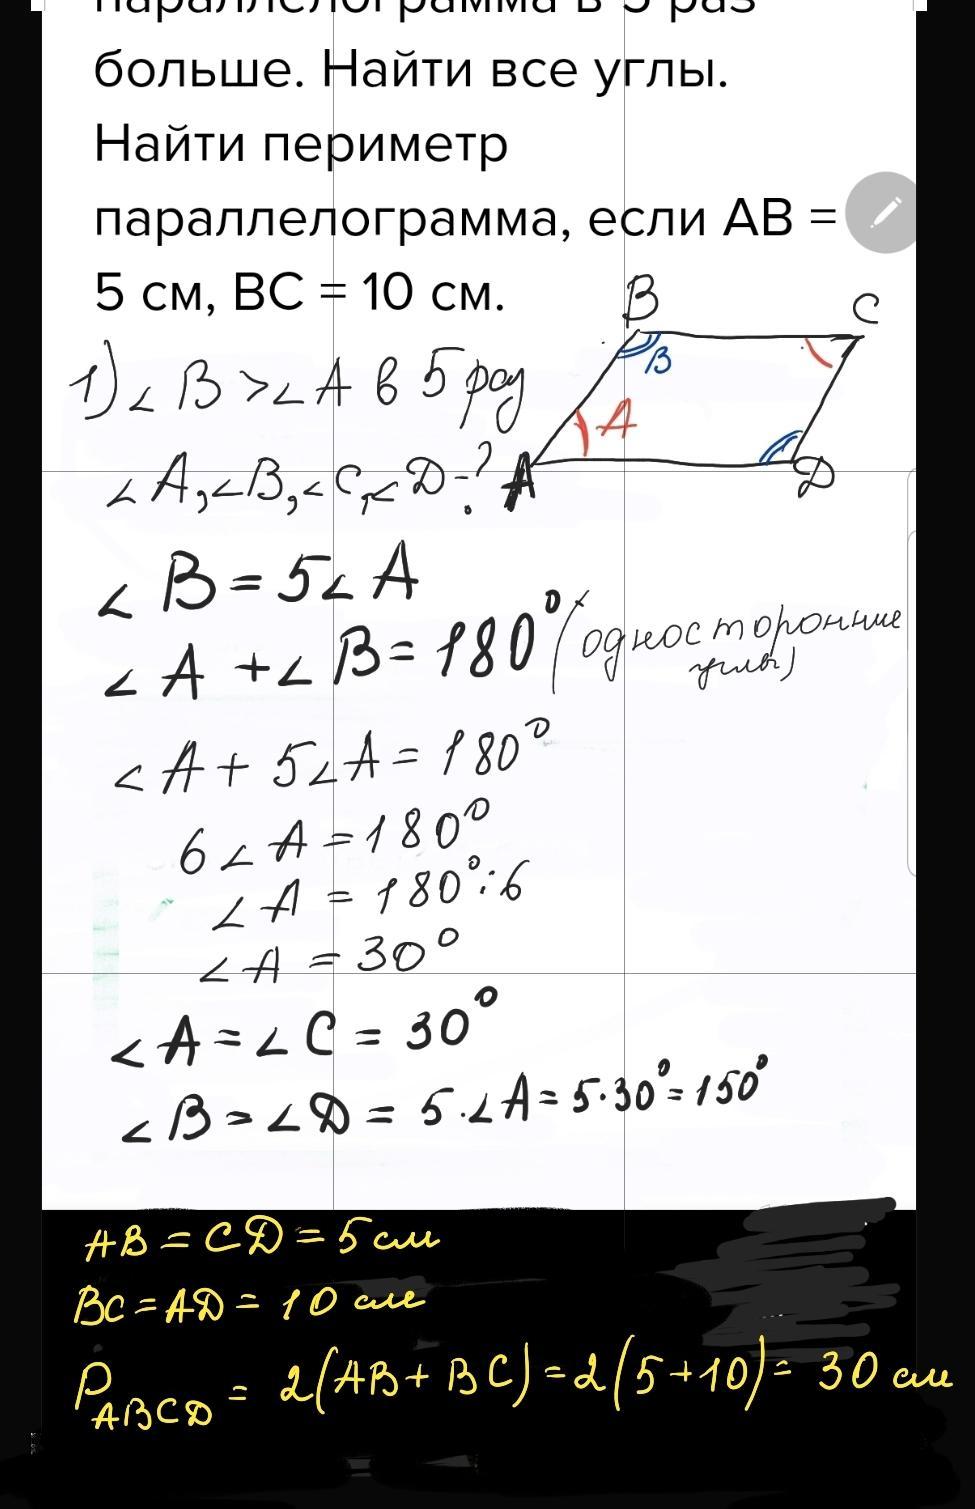 параллелограмма в 5 раз
больше. Найти все углы.
Найти периметр
параллелограмма, если AB =
5 см, BC = 10 см.
B
C
B
A
A
D
1) ∠B > ∠A в 5 раз
∠A, ∠B, ∠C, ∠D - ?
∠B = 5∠A
∠A + ∠B = 180° (односторонние
углы)
∠A + 5∠A = 180°
6∠A = 180°
∠A = 180° : 6
∠A = 30°
∠A = ∠C = 30°
∠B = ∠D = 5·∠A = 5·30° = 150°
AB = CD = 5 см
BC = AD = 10 см
P ABCD = 2(AB + BC) = 2(5+10) = 30 см